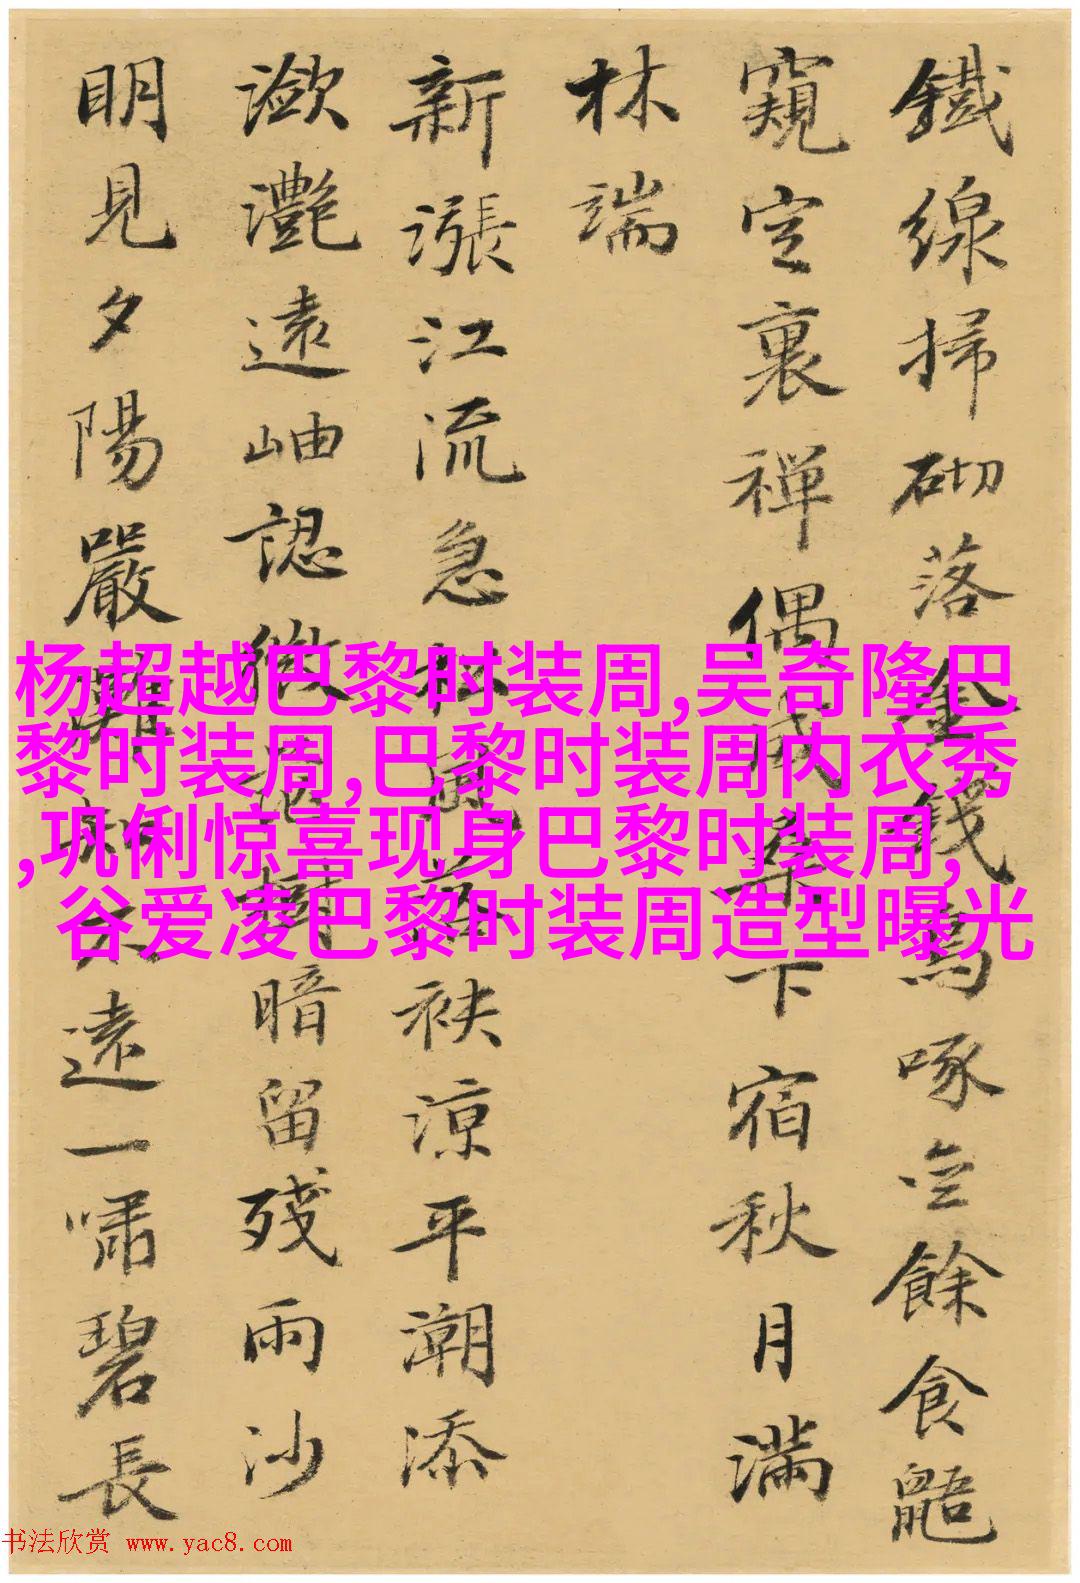 鐵線掃砌落金錢鳥啄空餘食鼯
窺定裏禪偶成桑下宿秋月滿
林端
新漲江流急林落袂涼平潮添
瀲灔遠岫認微茫樹暗留殘雨沙
明見夕陽嚴灘知不遠一嘯碧長
杨超越巴黎时装周,吴奇隆巴
黎时装周,巴黎时装周内衣秀
,巩俐惊喜现身巴黎时装周,
谷爱凌巴黎时装周造型曝光
书法欣赏 www.yac8.com